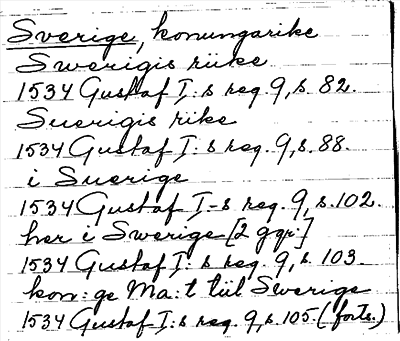 Sverige, konungarike
Swerigis riike
1534 Gustaf I:s reg. 9, s. 82.
Suerigis rike
1534 Gustaf I:s reg. 9, s. 88.
i Suerige
1534 Gustaf I-s reg. 9, s. 102.
her i Swerige [2 ggr.]
1534 Gustaf I:s reg. 9, s. 103
kon:ge Ma:t tiil Swerige
1534 Gustaf I:s reg. 9, s. 105. (forts.)